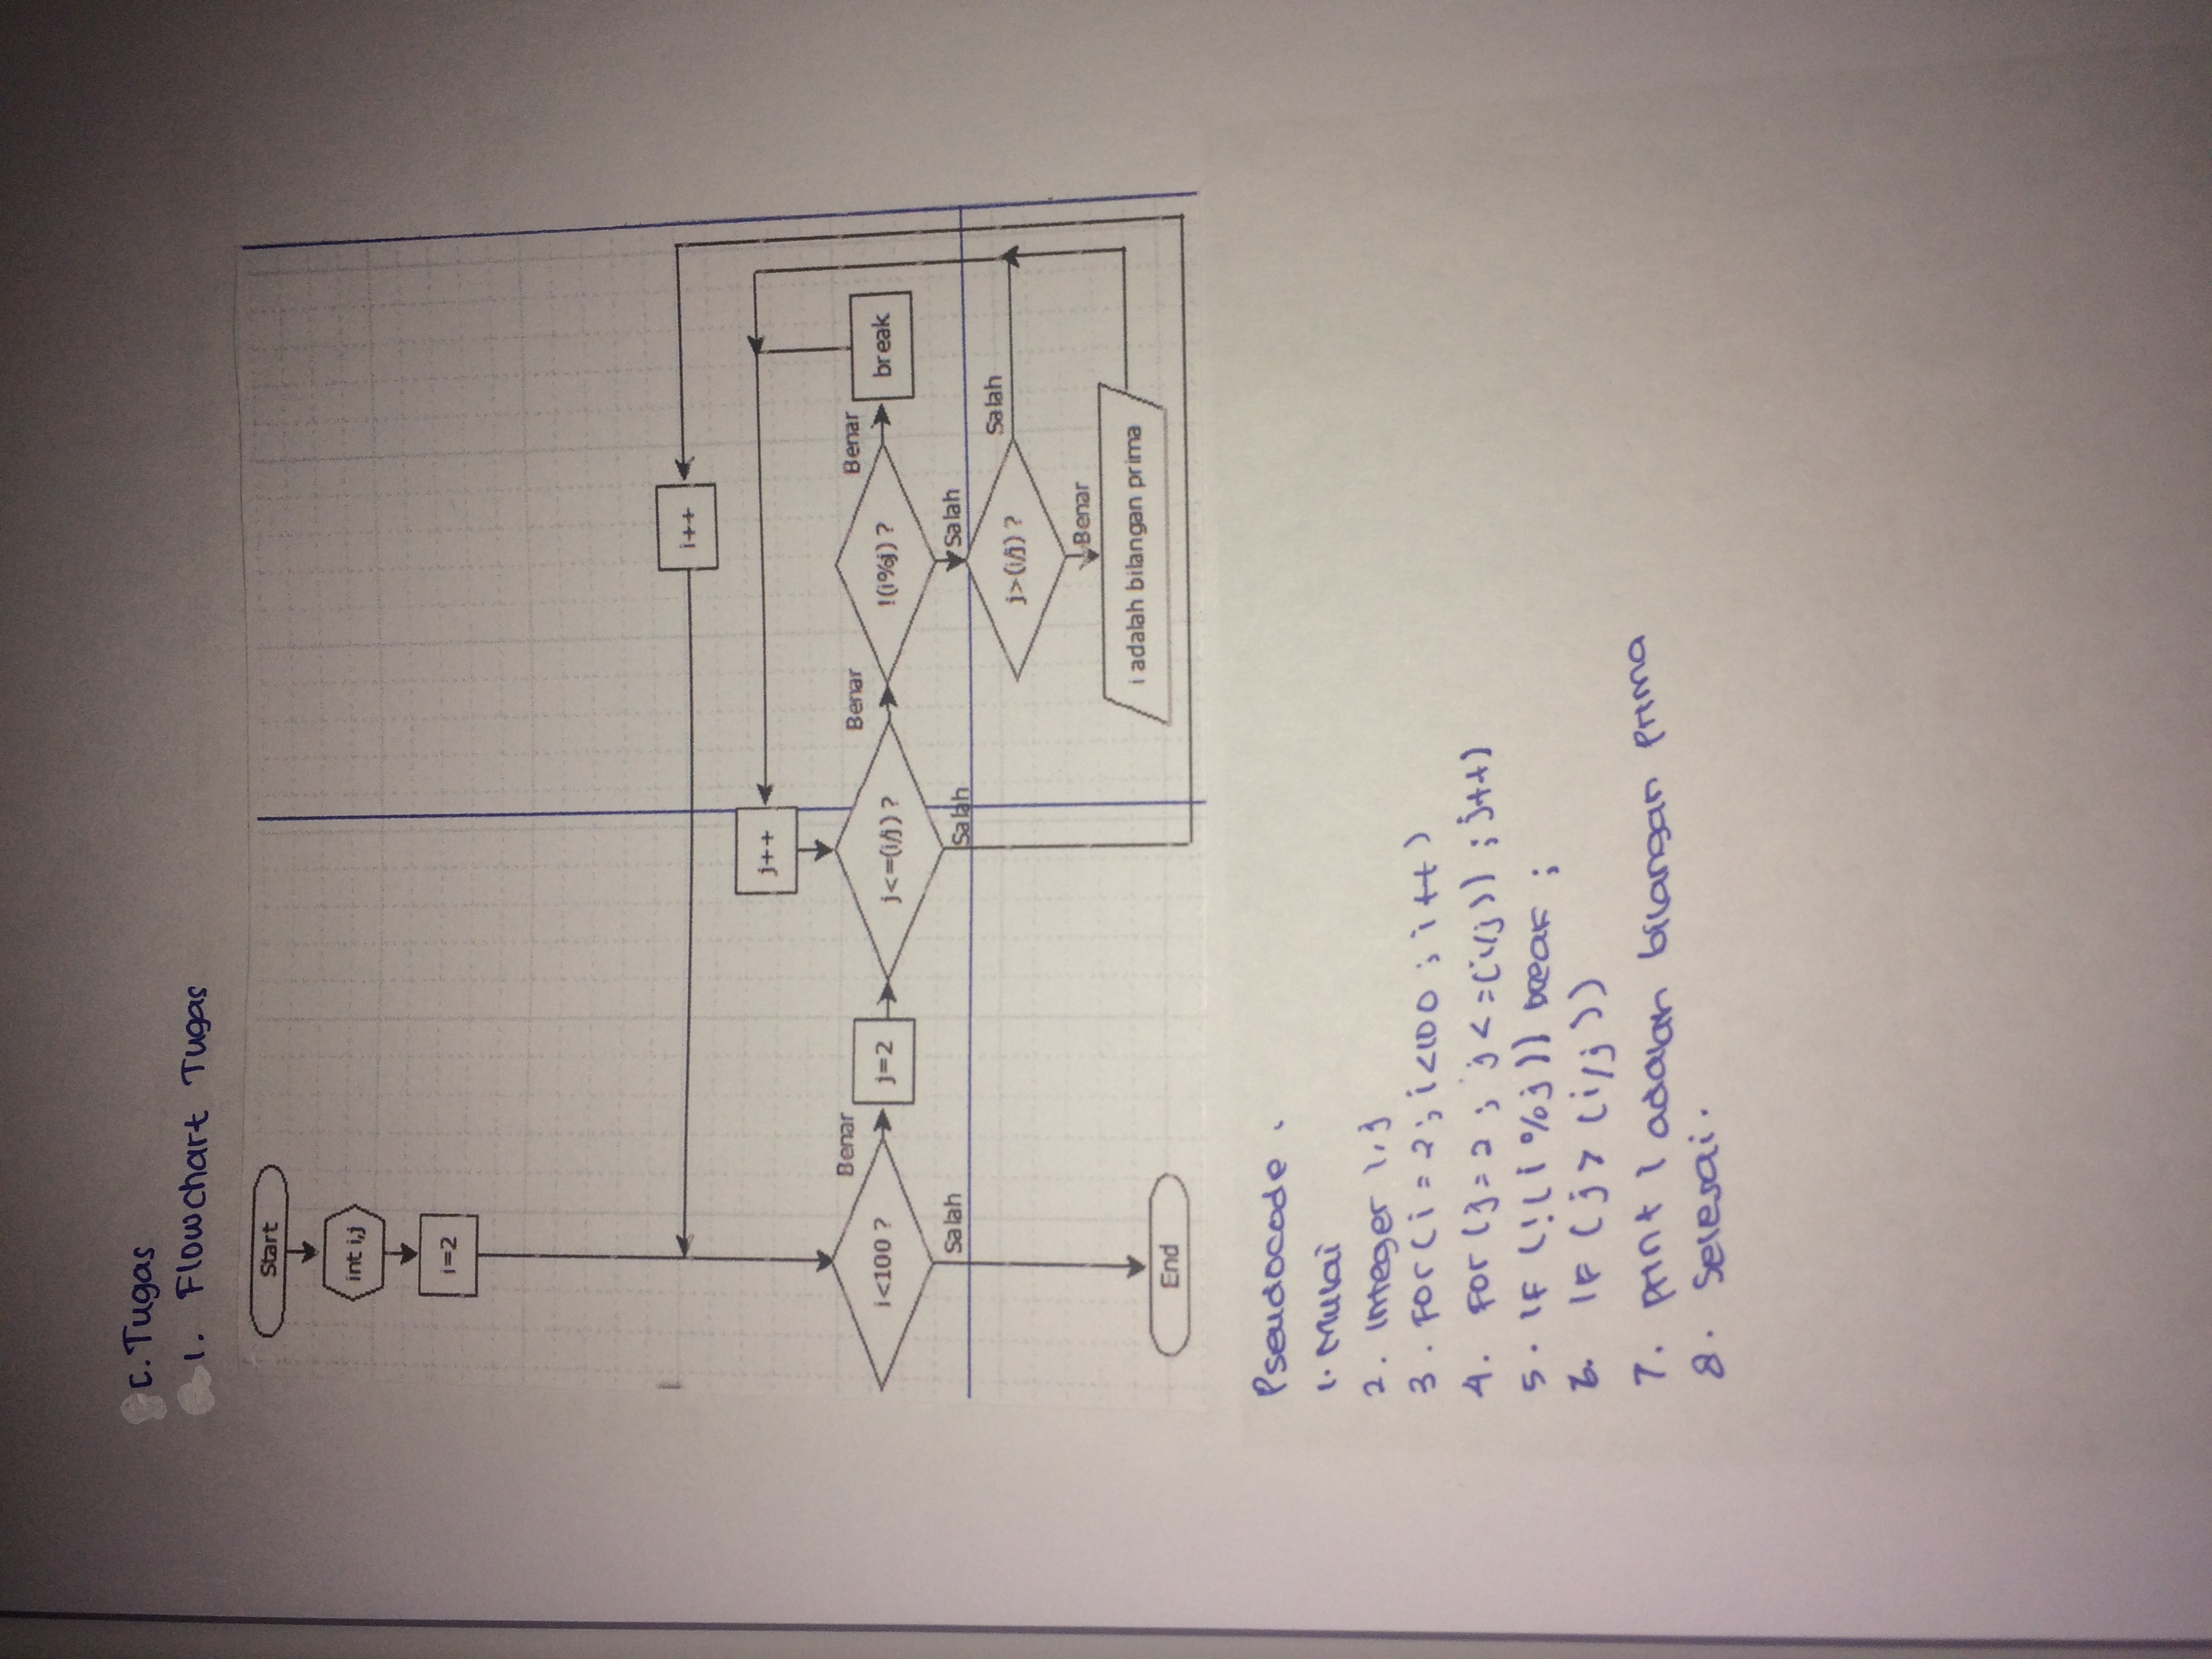 C. Tugas
1. Flowchart Tugas
Start
int i,j
i=2
i++
j++
i<100 ?
Benar
j=2
j<=(i/j) ?
Benar
!(i%j) ?
Benar
break
Salah
Salah
Salah
j>(i/j) ?
Salah
Benar
End
i adalah bilangan prima
Pseudocode.
1. Mulai
2. Integer i,j
3. For (i=2; i<100; i++)
4. For (j=2; j<=(i/j)); j++)
5. IF (!(i%j)) break;
6. IF (j>(i/j))
7. Print i adalah bilangan Prima
8. Selesai.